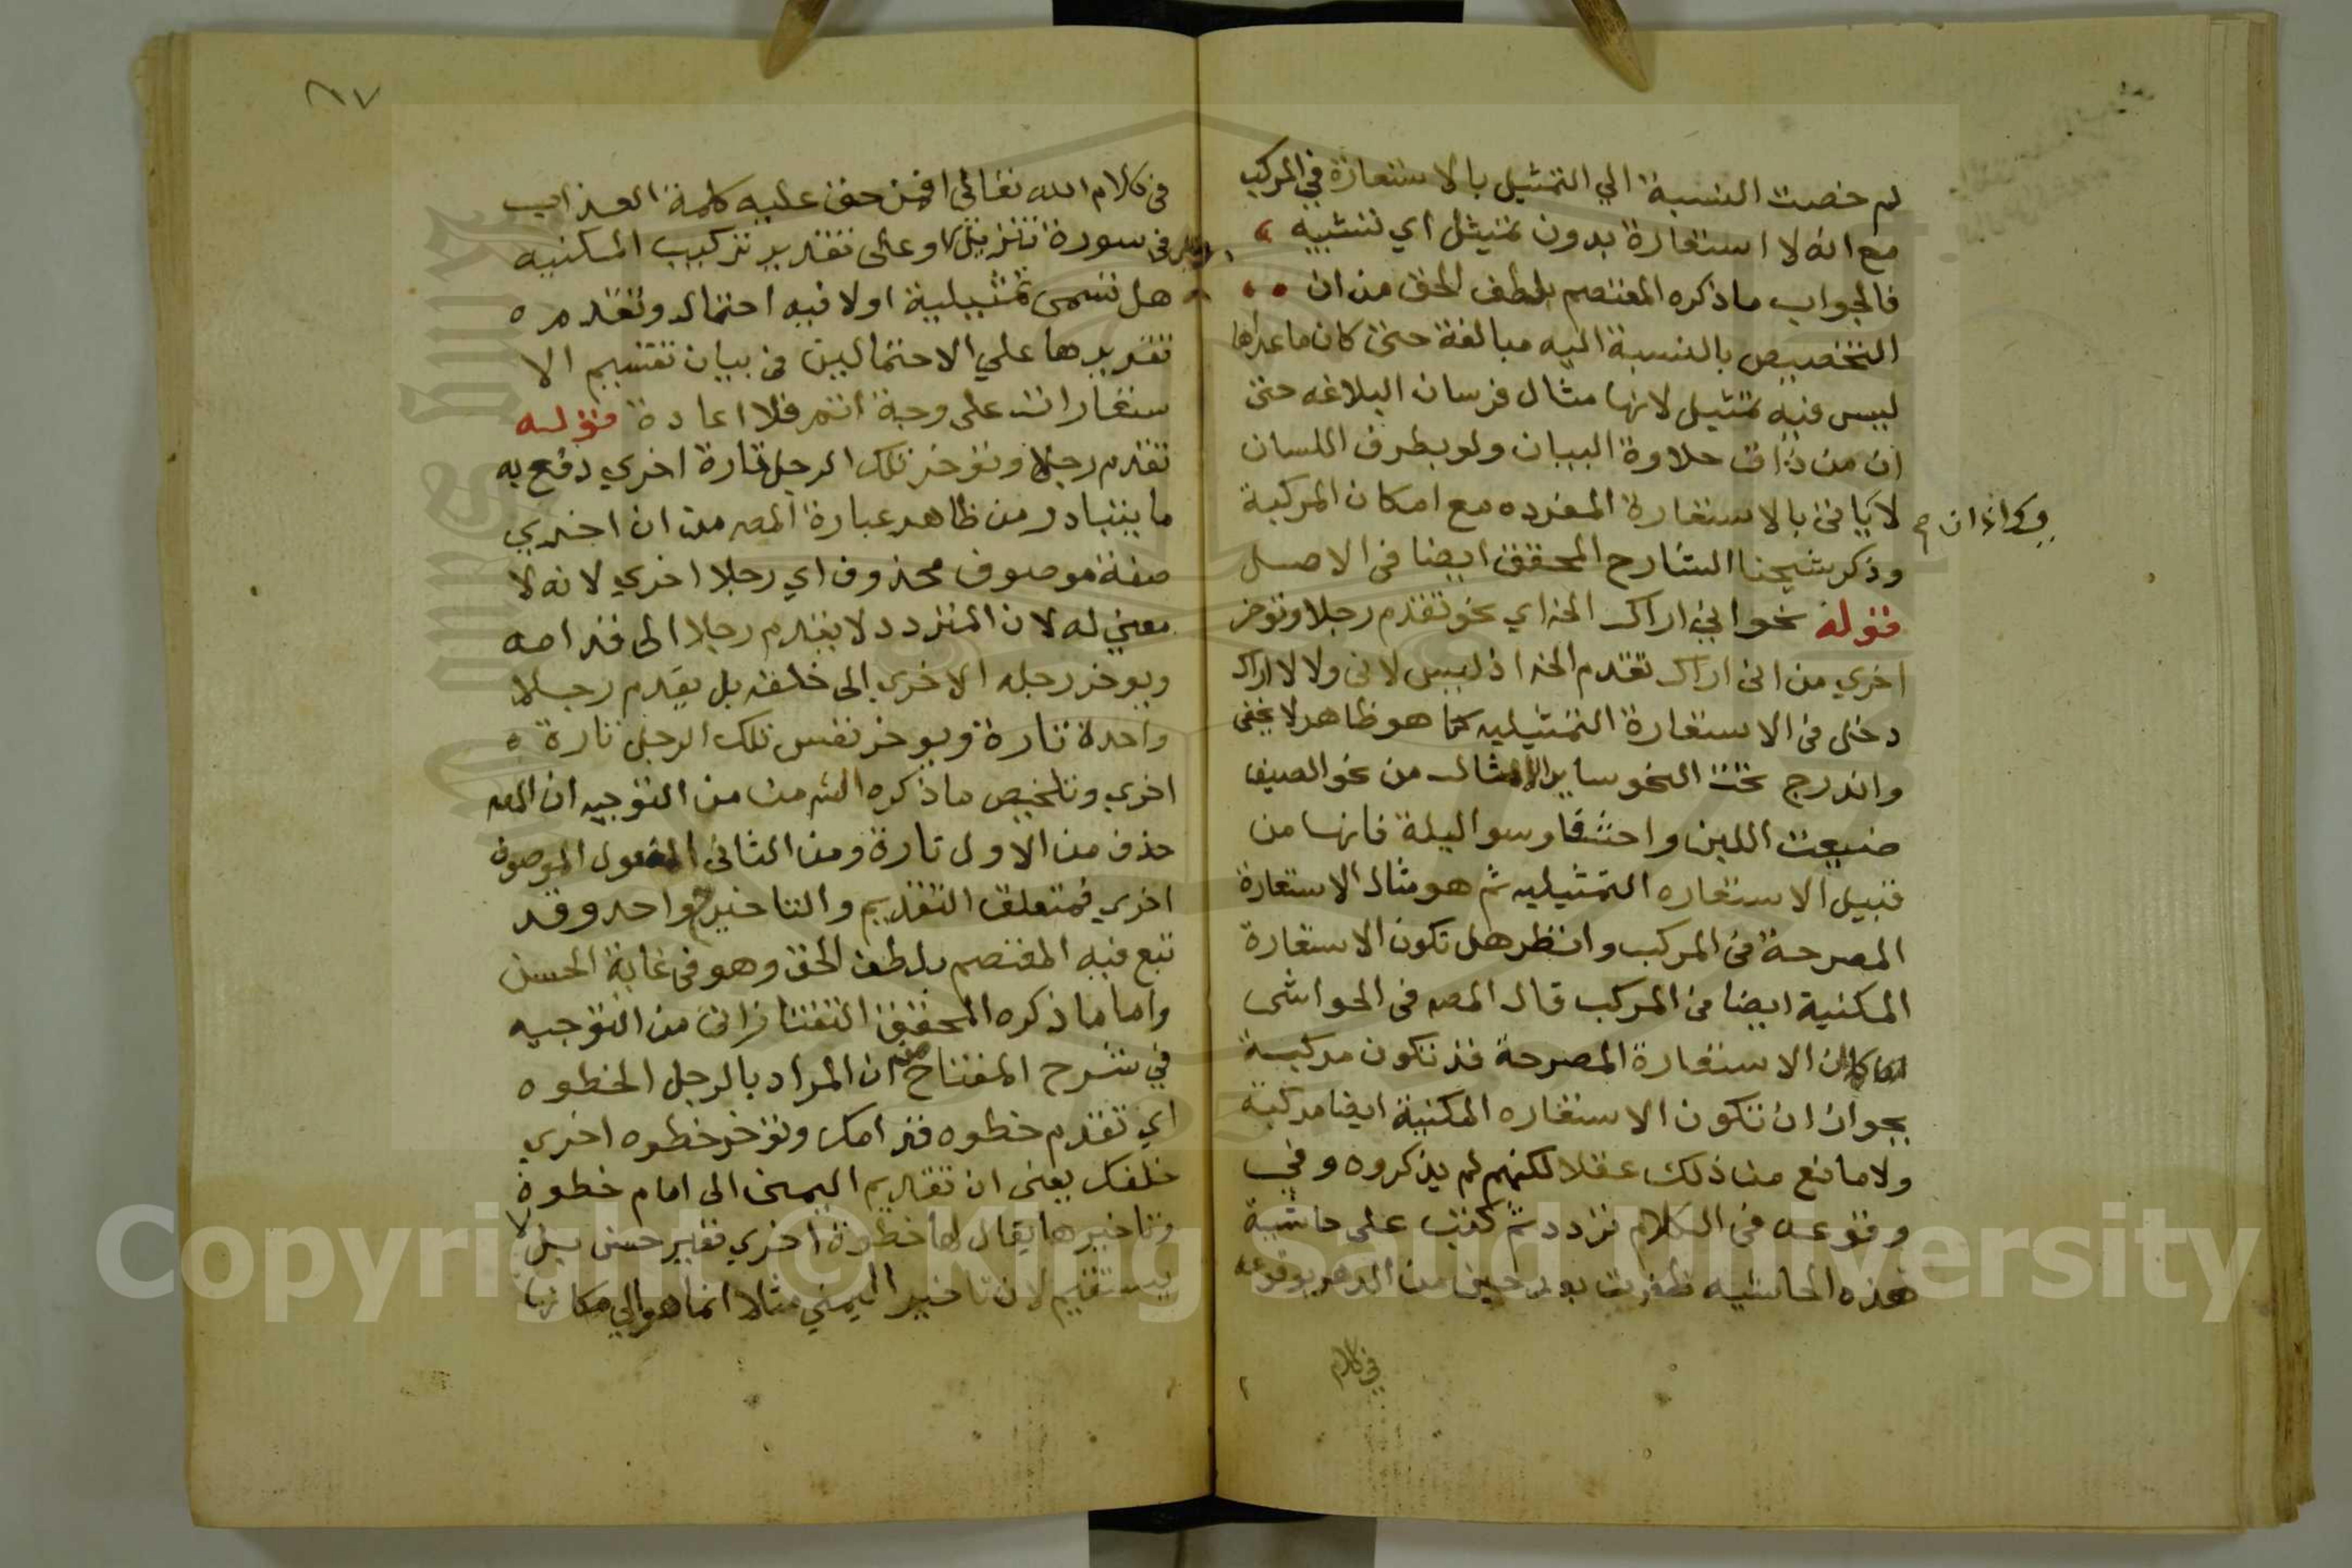 لم خصت النسبة الي التمثيل بالاستعارة في المركب
مع انه لا استعارة بدون تمثيل اي تشبيه
فالجواب ما ذكره المعتصم بلطف الحق من ان
التخصيص بالنسبة اليه مبالغة حتى كان ما عداها
ليس فيه تمثيل لانها مثال فرسان البلاغه حتى
ان من ذاق حلاوة البيان ولو بطرف اللسان
لا ياتى بالاستعارة المفرده مع امكان المركبة
وذكر شيخنا الشارح المحقق ايضا فى الاصل
قوله نحو اني اراك الخ اي نحو تقدم رجلا وتوخر
اخري من انى اراك تقدم الخ اذ ليس لانى ولا لاراك
دخل فى الاستعارة التمثيليه كما هو ظاهر لا يخفى
واندرج تحت النحو ساير الامثال من نحو الصيف
ضيعت اللبن واحشفا وسو اليلة فانها من
قبيل الاستعاره التمثيليه ثم هو مثال الاستعارة
المصرحة فى المركب وانظر هل تكون الاستعارة
المكنية ايضا فى المركب قال المصـ فى الحواشى
كما ان الاستعارة المصرحة قد تكون مركبة
يجوز ان تكون الاستعاره المكنية ايضا مركبة
ولا مانع من ذلك عقلا لكنهم لم يذكروه وفي
وقوعه فى الكلام تردد ثم كتب على حاشية
هذه الحاشيه ظفرت بعد حين من الدهر بوقوعه
في كلام
٨٧
فى كلام الله تعالى افمن حق عليه كلمة العذاب
فى سورة تنزيل او على تقدير تركيب المكنيه
هل تسمى تمثيلية اولا فيه احتمال وتقدم
تقريرها علي الاحتمالين فى بيان تقسيم الا
ستعارات على وجه اتم فلا اعادة قوله
تقدم رجلا وتوخر تلك الرجل تارة اخري دفع به
ما يتبادر من ظاهر عبارة المصـ من ان اخري
صفة موصوف محذوف اي رجلا اخري لانه لا
معني له لان المتردد لا يقدم رجلا الى قدامه
ويوخر رجله الاخري الى خلفه بل يقدم رجلا
واحدة تارة ويوخر نفس تلك الرجل تارة
اخري وتلخيص ما ذكره الشـ من التوجيه ان المصـ
حذف من الاول تارة ومن الثانى المفعول الموصوف
اخري فمتعلق التقديم والتاخير واحد وقد
تبع فيه المعتصم بلطف الحق وهو فى غاية الحسن
واما ما ذكره المحقق التفتازانى من التوجيه
في شرح المفتاح من ان المراد بالرجل الخطوه
اي تقدم خطوه قدامك وتوخر خطوه اخري
خلفك يعنى ان تقديم اليمنى الى امام خطوة
وتاخيرها يقال لها خطوة اخري فغير حسن بل لا
يستقيم لان تاخير اليمني مثلا انما هو الي مكانها
Copyright © King Saud University